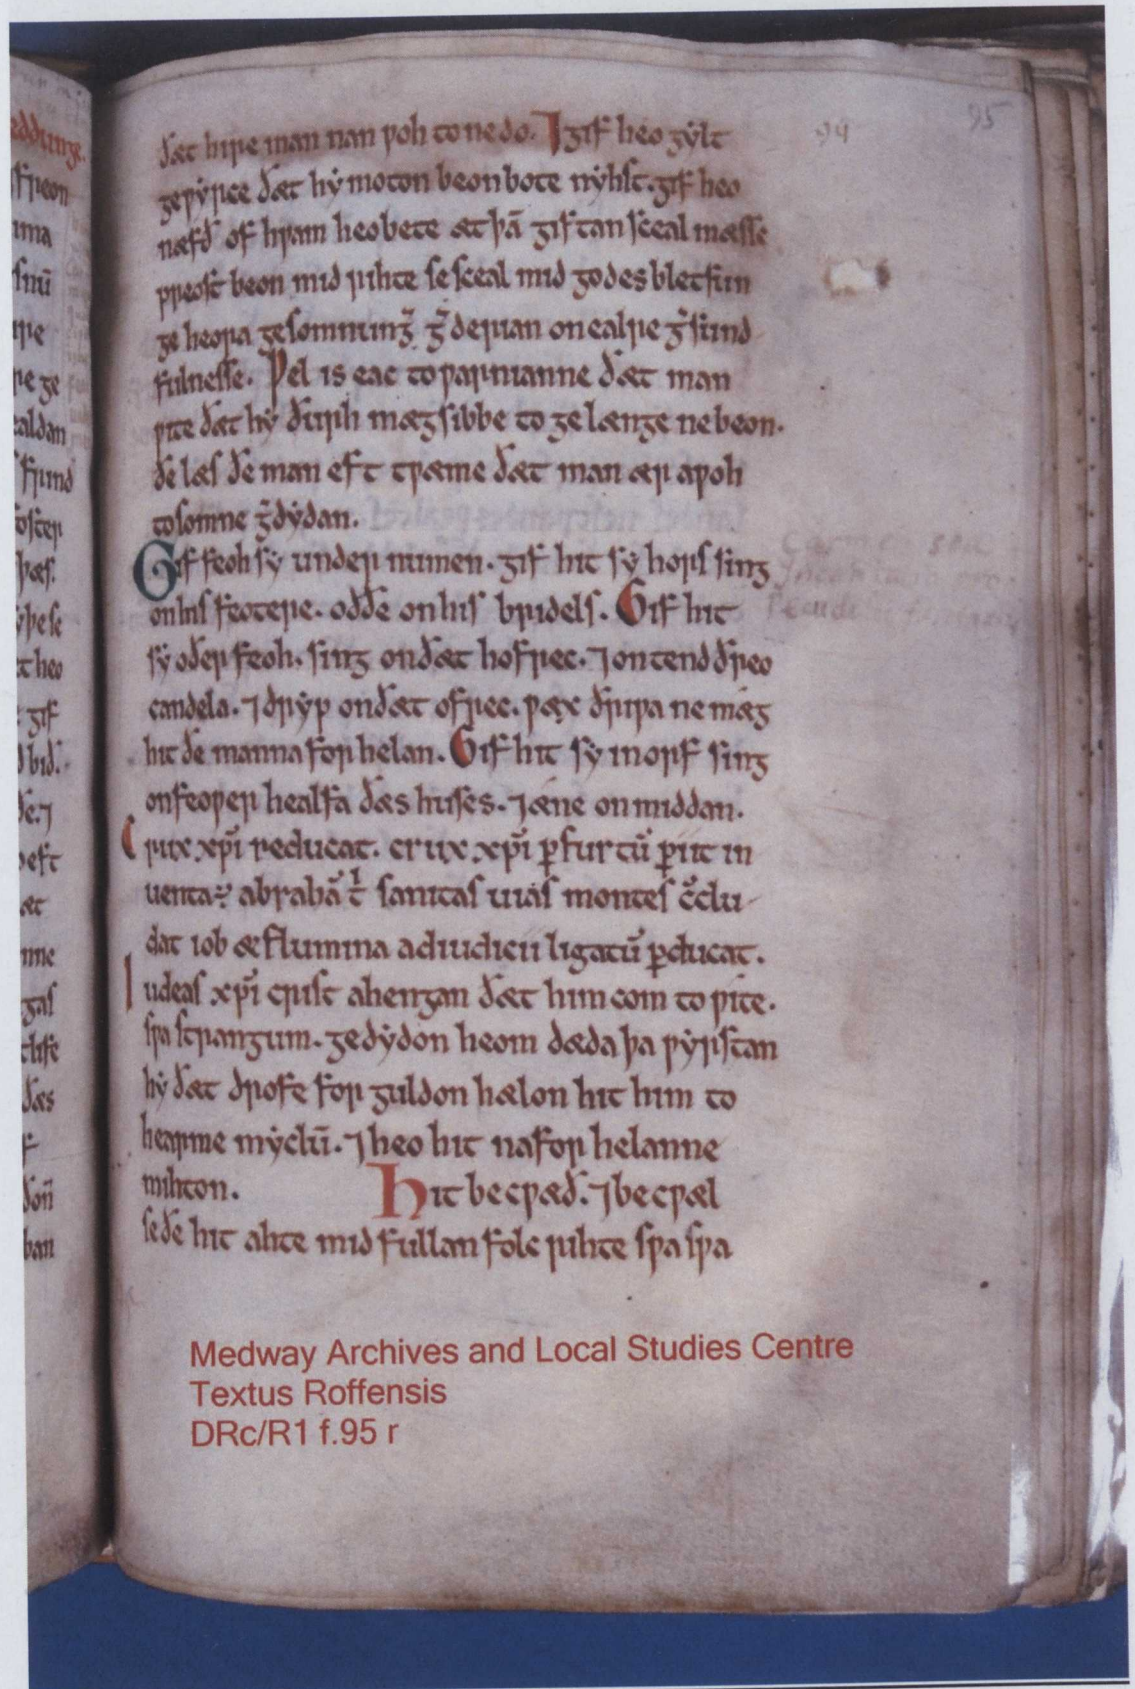 95
94
ðæt hire man nan ƿoh to ne do. ⁊ gif heo gẏlt
geƿẏrce ðæt hẏ moton beon bote nẏhst. gif heo
næfð of hƿam heo bete æt þā giftan sceal mæsse
preost beon mid rihte se sceal mid godes bletsun
ge heora gesomnung̅ g̅ðerian on ealre g̅sund
fulnesse. Ƿel is eac to ƿarnianne ðæt man
ƿite ðæt hẏ ðurh mægsibbe to gelænge ne beon.
ðe læs ðe man eft tƿæme ðæt man ær aƿoh
tosomne g̅dẏdan.
Gif feoh sẏ undernumen. gif hit sẏ hors sing
on his feotere. oððe on his bridels. Gif hit
sẏ oðer feoh. sing on ðæt hofrec. ⁊ ontend ðreo
candela. ⁊ drẏp on ðæt ofrec. ƿæx ðriƿa ne mæg
hit ðe manna forhelan. Gif hit sẏ inorf sing
on feoƿer healfa ðæs huses. ⁊ æne on middan.
Crux xp̄i reducat. crux xp̄i ꝑ furtū ꝑiit in
uenta÷ abrahā t̄ sanitas uias montes c̄clu
dat iob ⁊ flumina ad iudicii ligatū ꝑducat.
Iudeas xp̄i crist ahengan ðæt him com to ƿite.
sƿa strangum. gedẏdon heom dæda þa ƿẏrstan
hẏ ðæt drofe forguldon hælon hit him to
hearme mẏclū. ⁊ heo hit na forhelanne
mihton. Hit becƿæð. ⁊ becƿæl
se ðe hit ahte mid fullan folcrihte sƿa sƿa
Medway Archives and Local Studies Centre
Textus Roffensis
DRc/R1 f.95 r